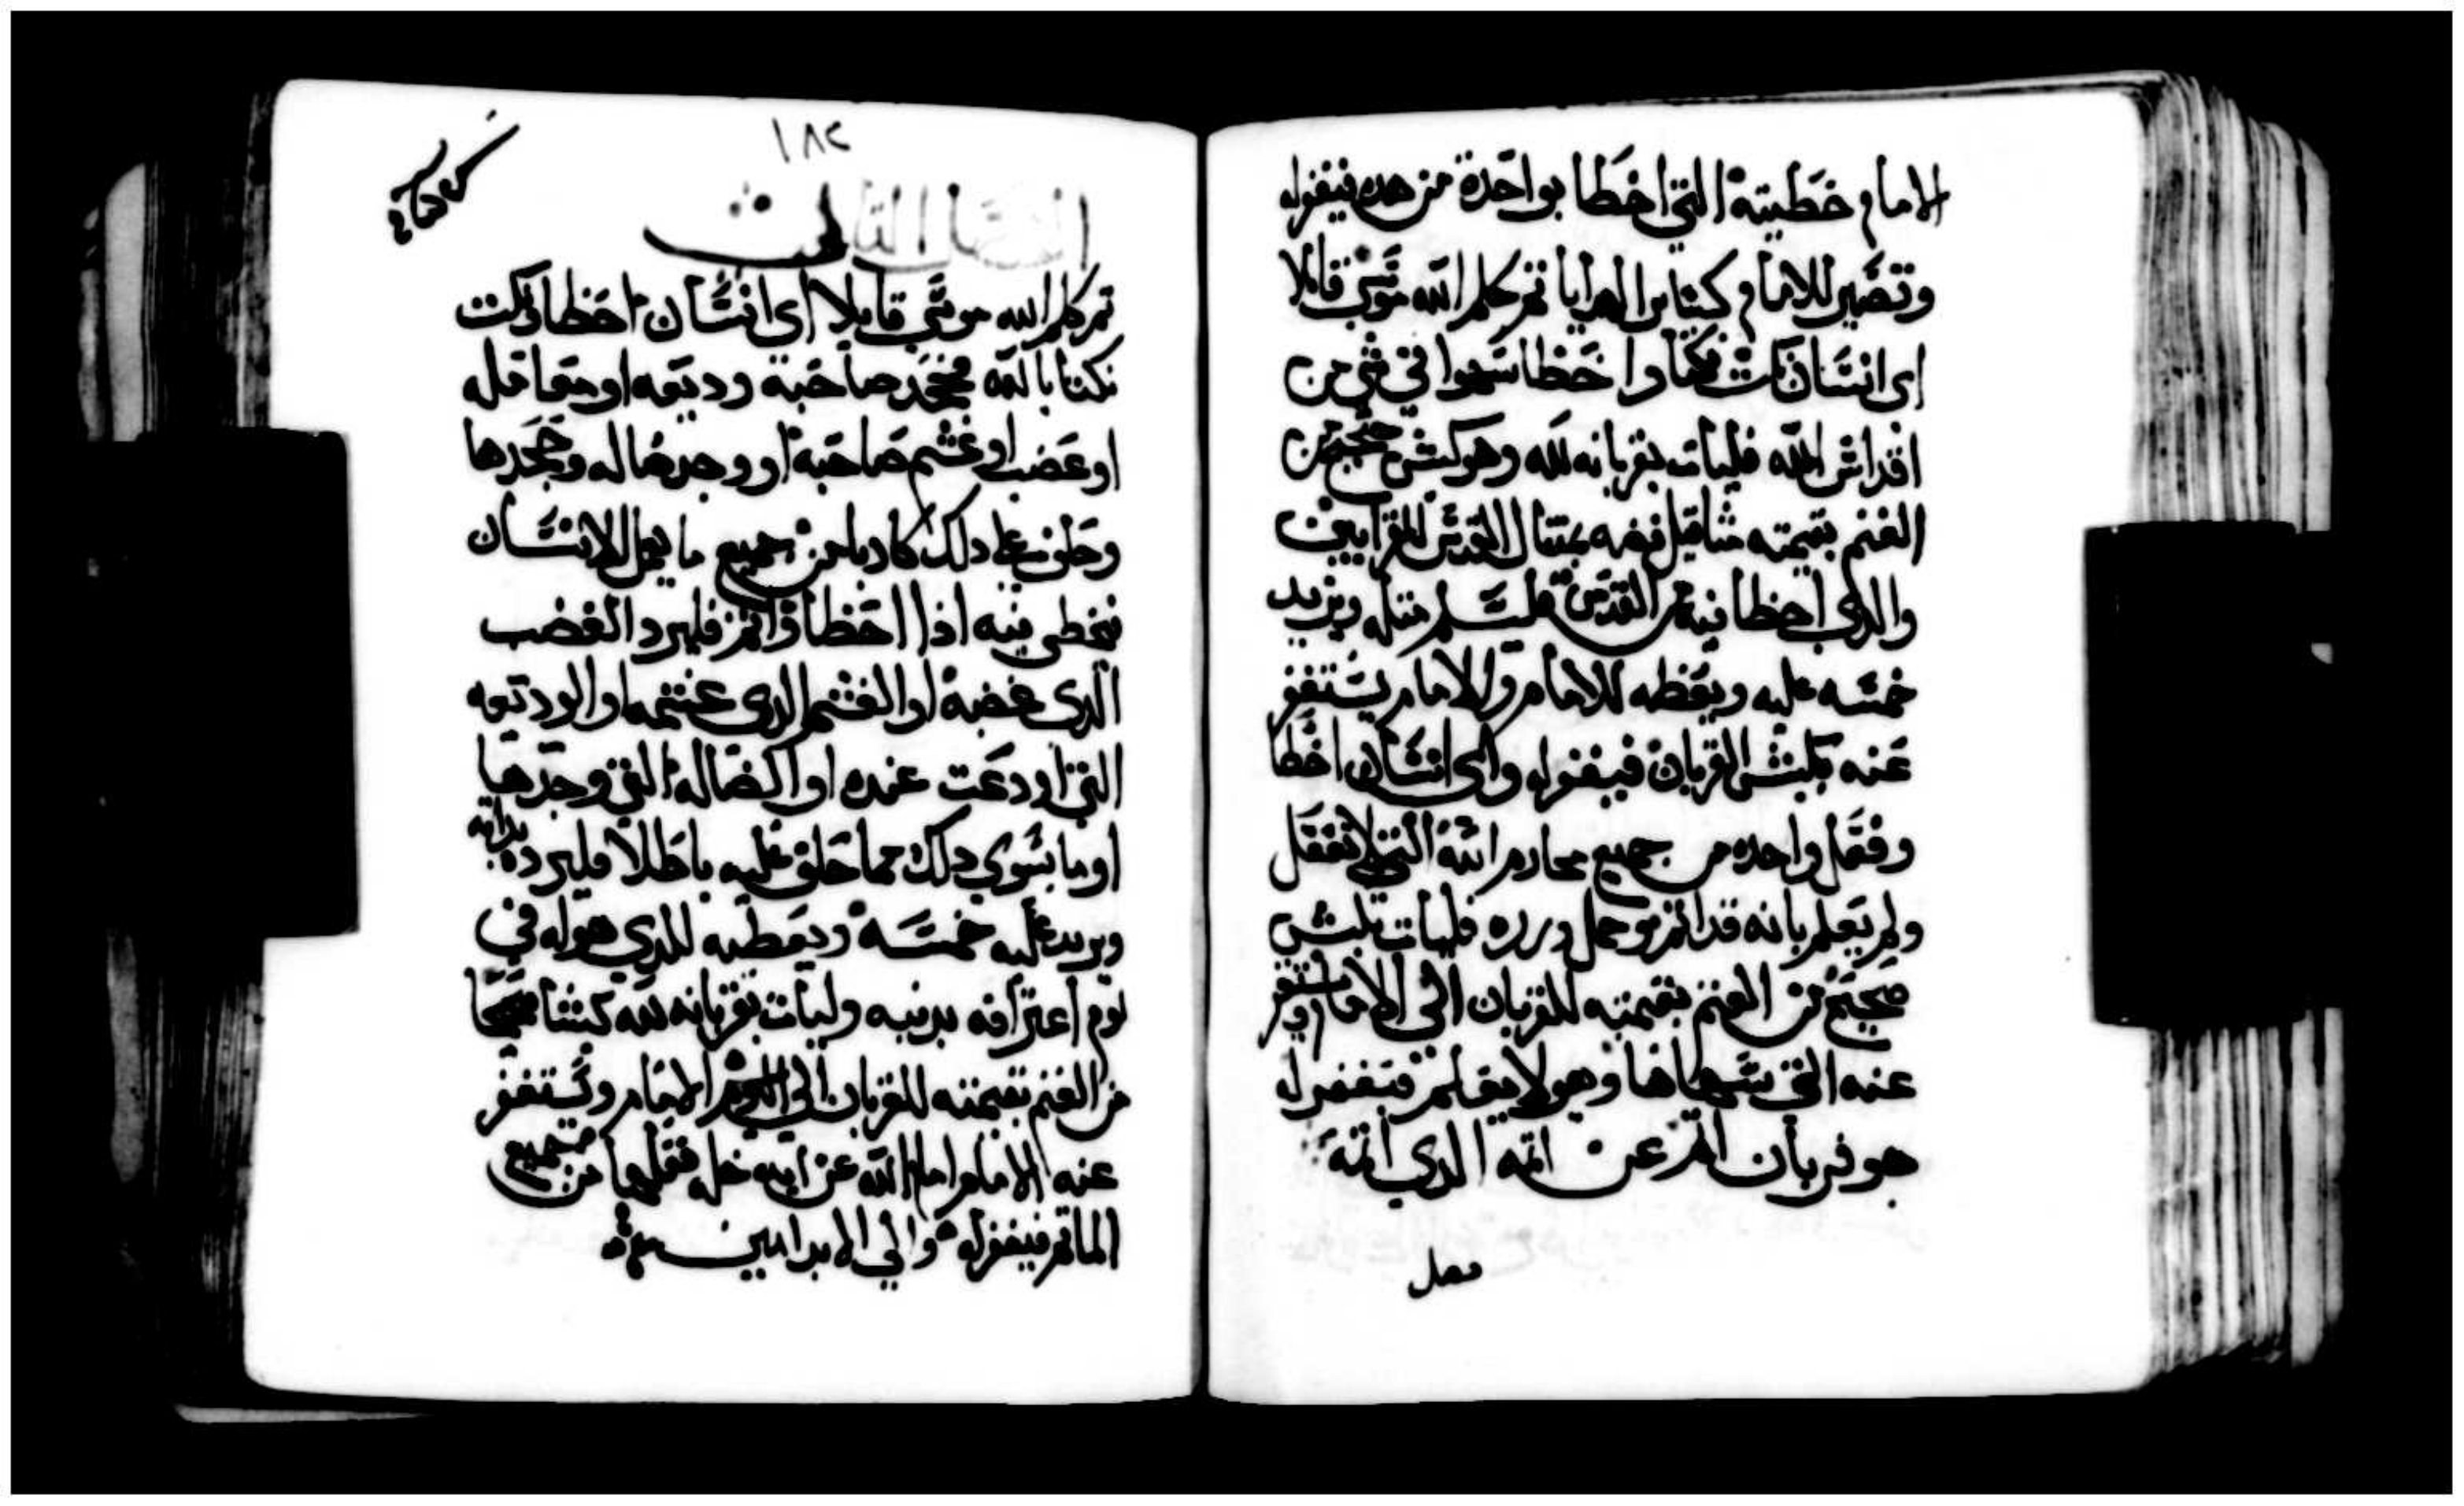 الامام خطيته التي اخطا بواحدة من هده فيغفرله
وتصير للامام كسايرا الهدايا تم كلم الله موسي قايلا
اي انسان نكث نكثا واخطا سهوا في شي من
اقداس الله فليات بقربانه لله وهو كبش صحيح من
الغنم بقيمته مثاقيل فضه بمثقال القدس للقرابين
والدي اخطا فيه من القدس فليسلم مثله ويزيد
خمسه عليه ويعطه للامام والامام يستغفر
عنه بكبش القربان فيغفرله واي انسان اخطا
وفعل واحده من جميع محارم الله التي لا تفعل
ولم يعلم بانه قد اثم وحمل وزره فليات بكبش
صحيح من الغنم بقيمته للقربان الي الامام ويستغفر
عنه التي سهاها وهو لا يعلم فيغفرله
هو قربان اثم عن اثمه الدي اثمه
فصل
١٨٢
الفصل الثالث
تم كلم الله موسي قايلا اي انسان اخطا ونكث
نكثا بالله فجحد صاحبه وديعه او معاقله
او غضب او غشم صاحبه او وجد ضاله وجحدها
وحلف علي دلك كادبا من جميع ما يعمل الانسان
فيخطي فيه اذا اخطا واثم فليرد الغضب
الدي غضبه او الغشم الدي غشمه او الوديعه
التي اودعت عنده او الضاله التي وجدها
او ما سوي دلك مما حلف عليه باطلا فليرده بداته
ويزيد عليه خمسه ويعطيه للدي هو له في
يوم اعترافه بدنبه وليات بقربانه لله كبشا صحيحا
من الغنم بقيمته للقربان الي الامام ويستغفر
عنه الامام امام الله عن ايه خله فعلها من جميع
الماتم فيغفرله والي الابد امين